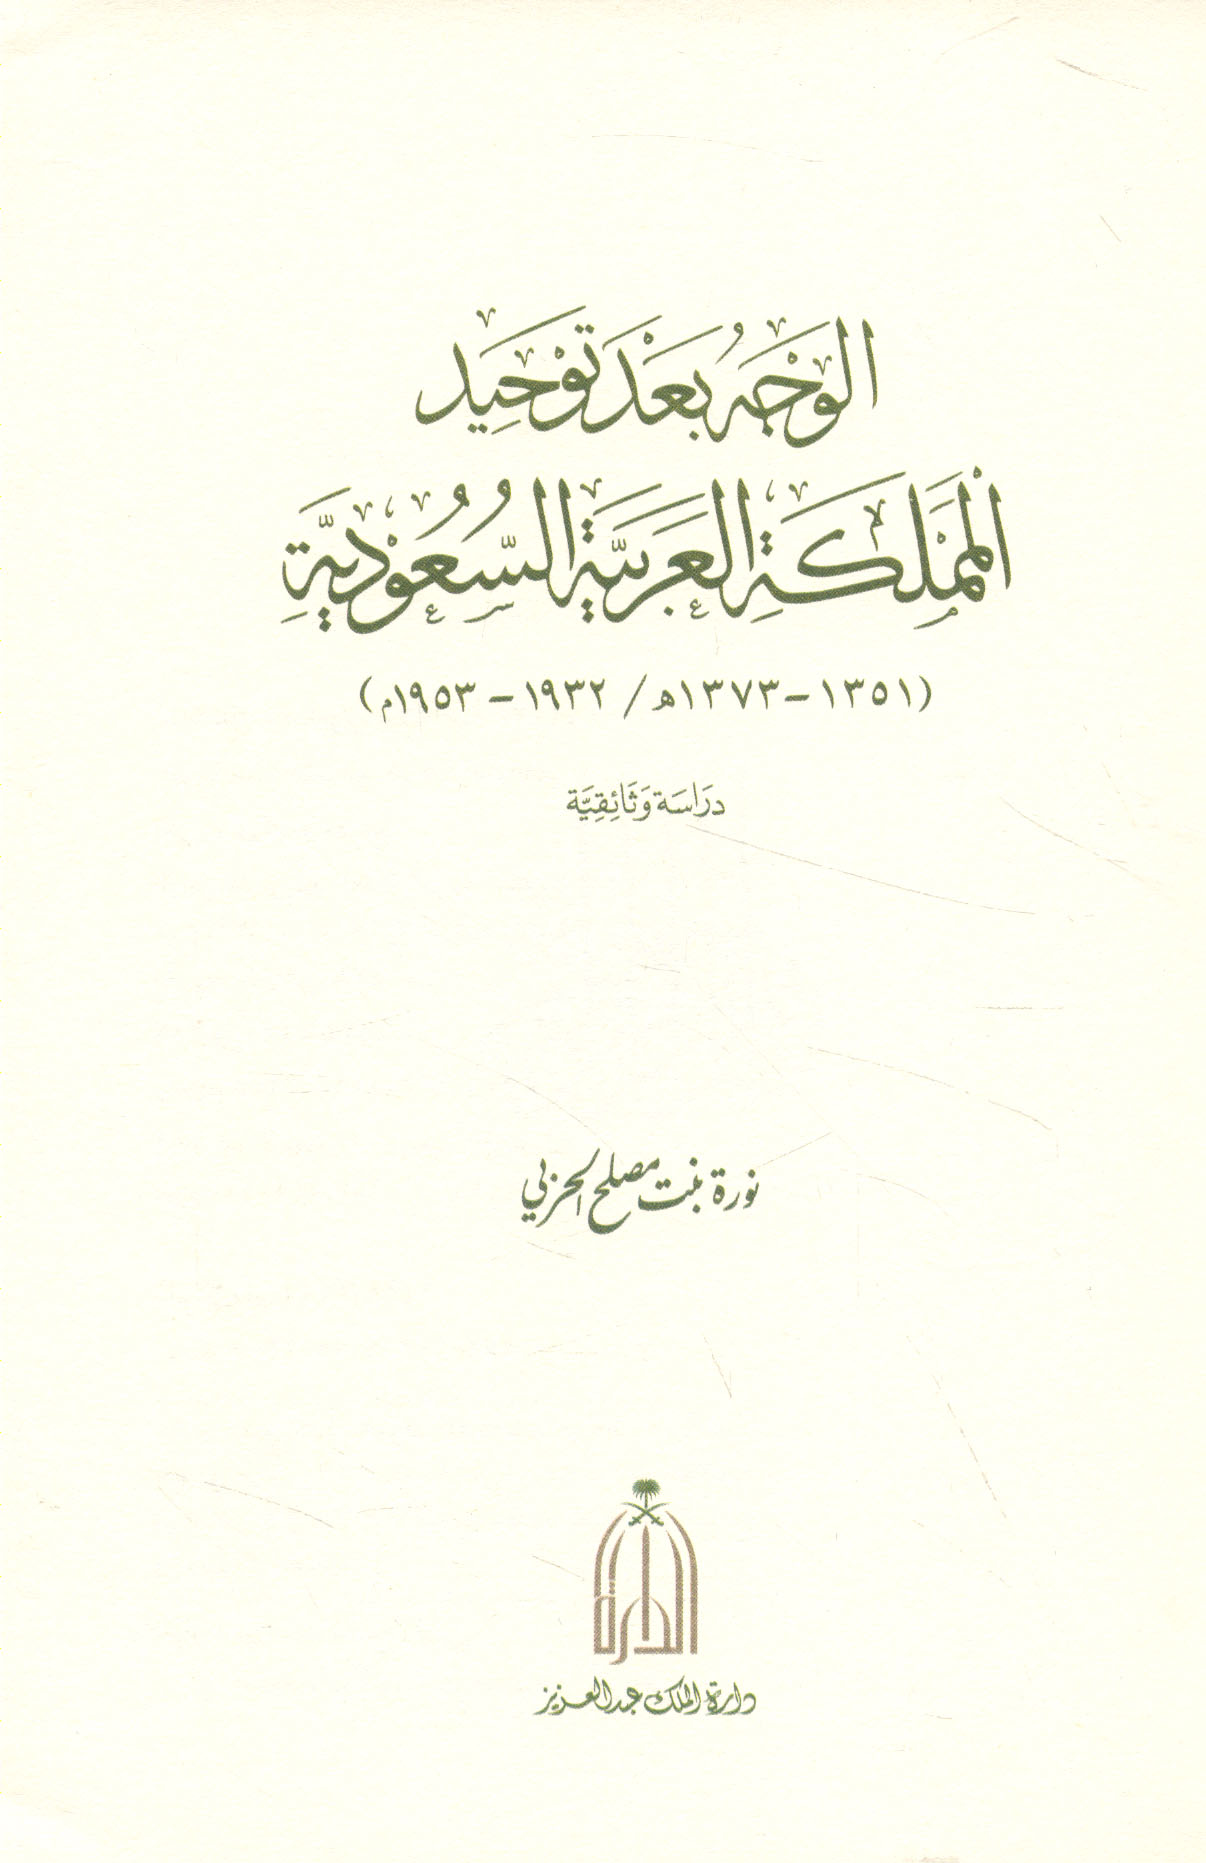 الوَجْهُ بَعْدَ تَوْحِيد
المَمْلَكَةِ العَرَبِيَّةِ السُّعُوْدِيَّةِ
(١٣٥١-١٣٧٣هـ/ ١٩٣٢-١٩٥٣م)
دِرَاسَة وَثَائِقِيَّة
نورة بنت مصلح الحربي
الدارة
دارة الملك عبدالعزيز